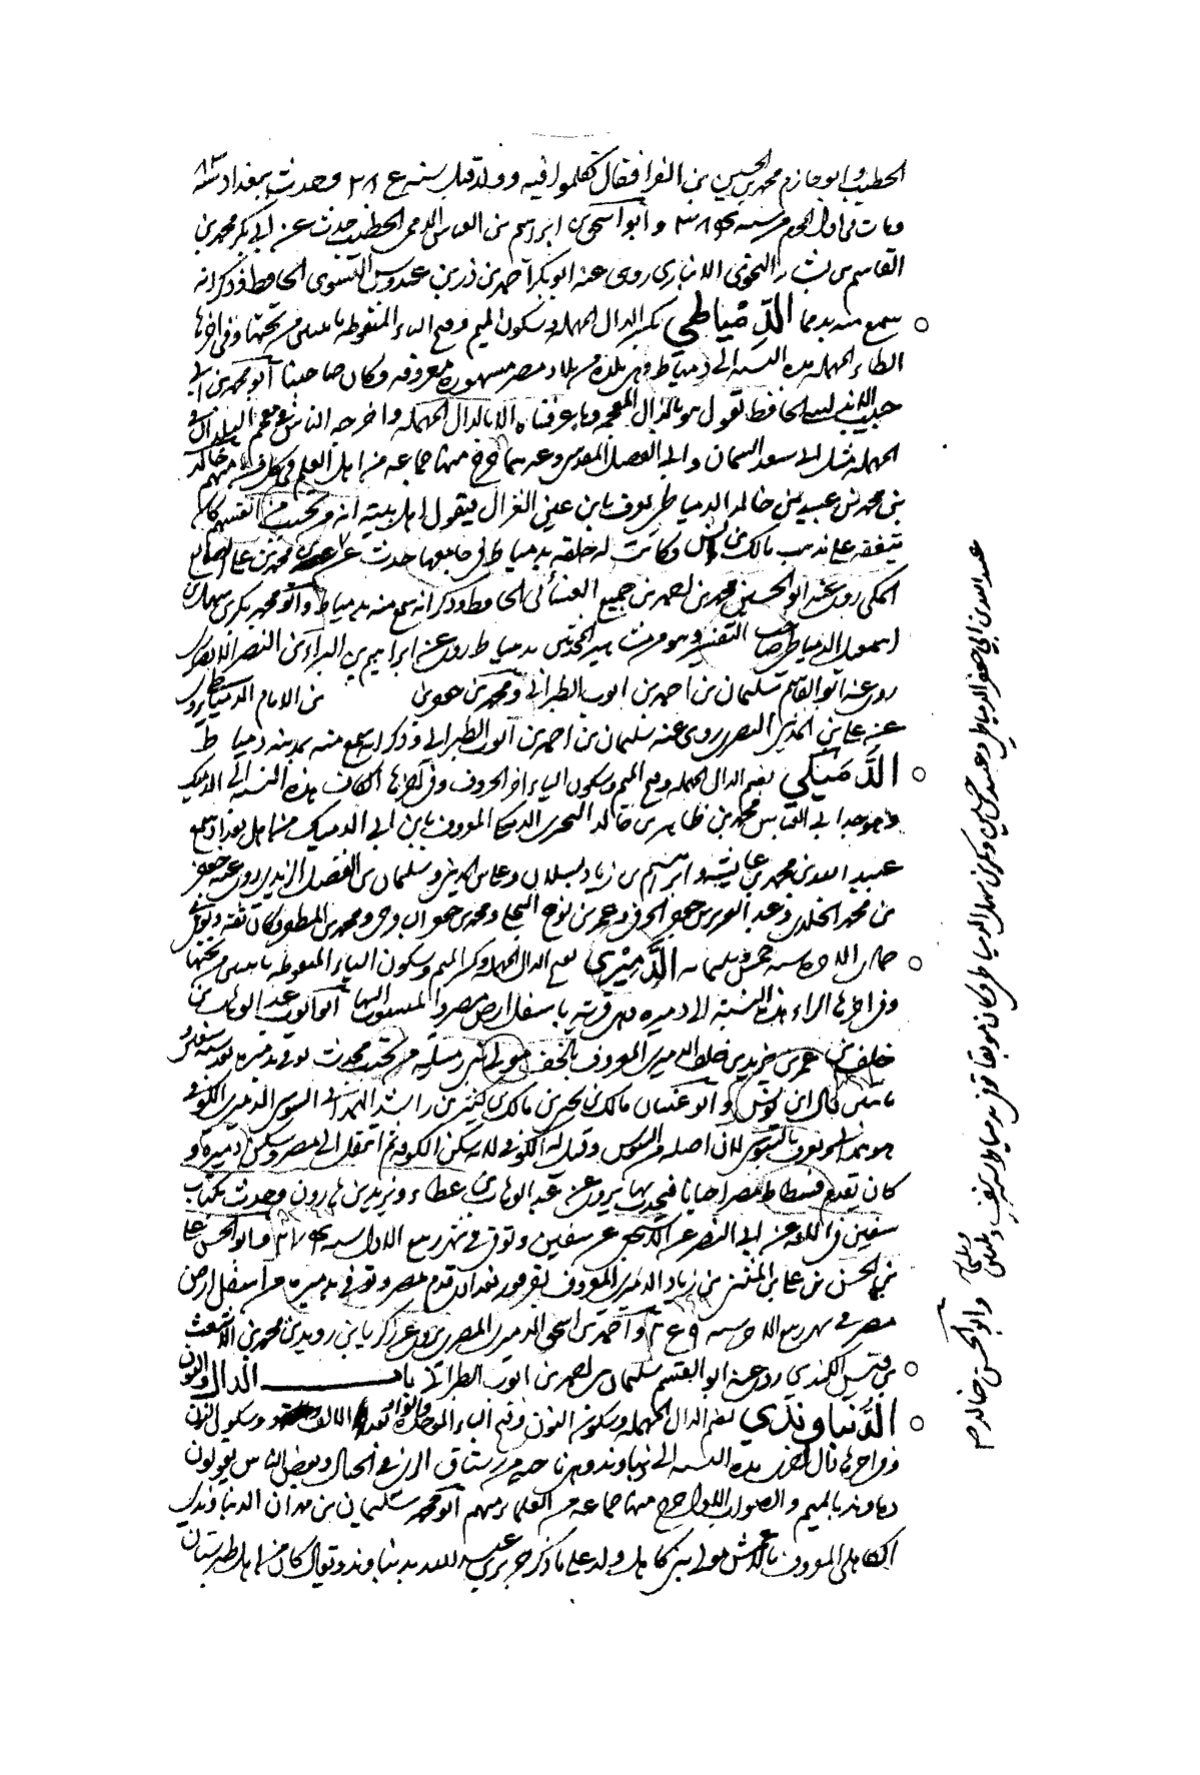 الخطيب وابو حازم محمد بن الحسين بن الفرا فقال تكلموا فيه وولد قبل سنة وحدث ببغداد سنة
ومات في اول المحرم سنة وابو اسحق ابراهيم بن العباس الخطيب حدث عن ابي بكر محمد بن
القاسم بن بشار النحوي الانباري روى عنه ابو بكر احمد بن ذر بن عبدوس الحافظ وذكر انه
سمع منه بدمما الدِّمْياطي بكسر الدال المهملة وسكون الميم وفتح الياء المنقوطة باثنتين من تحتها وفي اخرها
الطاء المهملة هذه النسبة الى دمياط وهي بلدة من بلاد مصر مشهورة معروفة وكان صاحبنا ابو محمد بن ابي
حبيب الاندلسي الحافظ يقول هو بالذال المعجمة وما عرفناه الا بالدال المهملة واخرجه الناس في معجم البلدان في
المهملة مثل ابي سعد السمان وابي الفضل المقدسي وغيرهما خرج منها جماعة من اهل العلم في كل فن منهم خالد
بن محمد بن عبيد بن خالد الدمياطي يعرف بابن عين الغزال يقول اهل بيته انه من تجيب من انفسهم كان
يتفقه على مذهب مالك بن انس وكانت له حلقة بدمياط في جامعها حدث عن محمد بن علي الصائغ
المكي روى عنه ابو الحسين محمد بن احمد بن جميع الغساني الحافظ وذكر انه سمع منه بدمياط وابو محمد بكر بن سهل بن
اسمعيل الدمياطي صاحب التفسير وهو من مشاهير المحدثين بدمياط روى عن ابراهيم بن البراء بن النضر الانصاري
روى عنه ابو القاسم سليمان بن احمد بن ايوب الطبراني ومحمد بن جعفر بن الامام الدمياطي يروي
عن علي بن المديني البصري روى عنه سليمان بن احمد بن ايوب الطبراني وذكر انه سمع منه بمدينة دمياط
الدُّمَيكي بضم الدال المهملة وفتح الميم وسكون الياء اخر الحروف وفي آخرها الكاف هذه النسبة الى الدميك
وهو جد ابي العباس محمد بن طاهر بن خالد البختري الدميكي المعروف بابن ابي الدميك من اهل بغداد سمع
عبيد الله بن محمد بن عائشة وابراهيم بن زياد سبلان وعلي بن المديني وسليمان بن الفضل الزيدي روى عنه جعفر
بن محمد الخلدي وعبد العزيز بن جعفر الخرقي وعمر بن نوح البجلي ومحمد بن جعفر ومحمد بن المظفر وكان ثقة وتوفي
جمادى الاخرة سنة خمس وثلثمائة الدَّمِيْري بفتح الدال المهملة وكسر الميم وسكون الياء المنقوطة باثنتين من تحتها
وفي اخرها الراء هذه النسبة الى دميرة وهي قرية باسفل ارض مصر والمنسوب اليها ابو ايوب عبد الوهاب بن
خلف بن عمر بن يزيد بن خلف الدميري المعروف بالخف مولى بني رسلة من تجيب محدث توفي بدميرة بعد سنة سبعين و
مائتين قاله ابن يونس وابو غسان مالك بن يحيى بن مالك بن كثير بن راشد الهمداني السوسي الدميري الكوفي
هو همداني يعرف بالسوسي لان اصله من السوس وقيل له الكوفي لانه سكن الكوفة ثم انتقل الى مصر وسكن دميرة و
كان يقدم فسطاط مصر احيانا فيحدث بها يروي عن عبد الوهاب بن عطاء ويزيد بن هارون وحدث بكتاب
سفين في الفقه عن ابي النضر عن الاشجعي عن سفين وتوفي في شهر ربيع الاول سنة وابو الحسن علي
بن الحسن بن علي بن المثنى بن زياد الدميري المعروف بقرقور بغدادي قدم مصر وتوفي بدميرة من اسفل ارض
مصر في شهر ربيع الاخر سنة واحمد بن اسحق الدميري المصري يروي عن زكريا بن دويد بن محمد بن الاشعث
بن قيس الكندي روى عنه ابو القسم سليمان بن احمد بن ايوب الطبراني باب الدال والنون
الدُّنباوَندي بضم الدال المهملة وسكون النون وفتح الباء الموحدة والواو بعد الالف وسكون النون
وفي اخرها دال اخرى هذه النسبة الى دنباوند وهي ناحية من رستاق الري في الجبال وبعض الناس يقولون
دماوند بالميم والصواب الاول خرج منها جماعة من العلماء منهم ابو محمد سليمان بن مهران الدنباوندي
الكاهلي المعروف بالاعمش مولى بني كاهل ولد على ما ذكر جرير بن عبد الله بدنباوند ويقال كان من اهل طبرستان
عبد الله بن ابي جعفر الدمياطي وعنه بكر بن سهل الدمياطي وكان موثقا توفي بدمياط سنة نيف وثلثين ومائتين وابو الحسن خالد بن